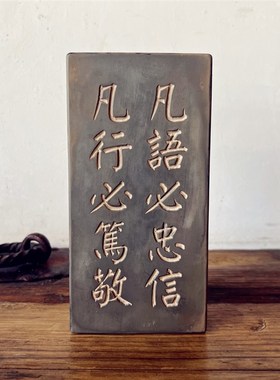 凡語必忠信
凡行必篤敬